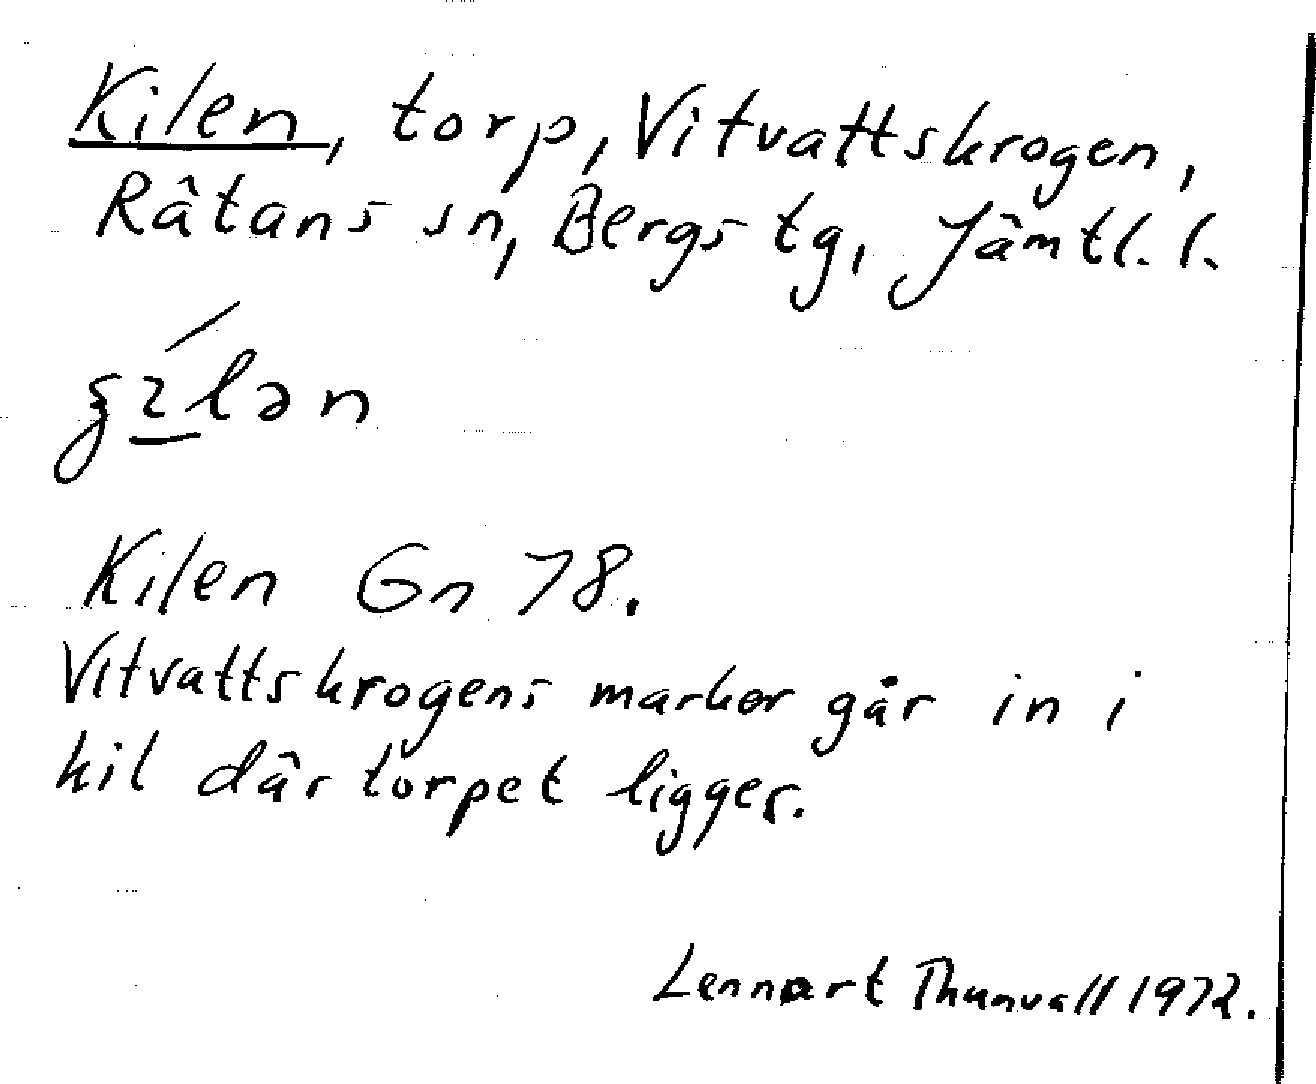 Kilen, torp, Vitvattskrogen,
Rätans sn, Bergs tg, Jämtl. l.
Kilen Gn 78.
Vitvattskrogens marker går in i
kil där torpet ligger.
Lennart Thunvall 1972.